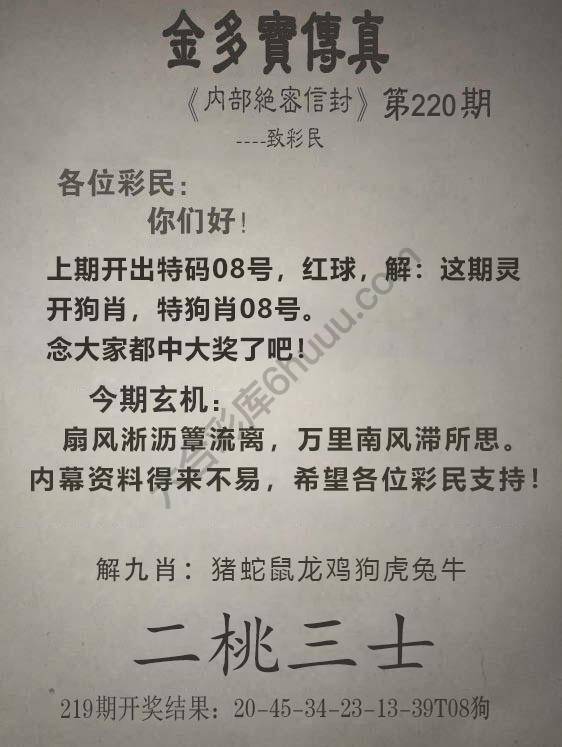 金多寶傳真
《内部絕密信封》第220期
----致彩民
各位彩民：
你们好！
上期开出特码08号，红球，解：这期灵
开狗肖，特狗肖08号。
念大家都中大奖了吧！
今期玄机：
扇风淅沥簟流离，万里南风滞所思。
内幕资料得来不易，希望各位彩民支持！
解九肖：猪蛇鼠龙鸡狗虎兔牛
二桃三士
219期开奖结果：20-45-34-23-13-39T08狗
六合彩库6huuu.com